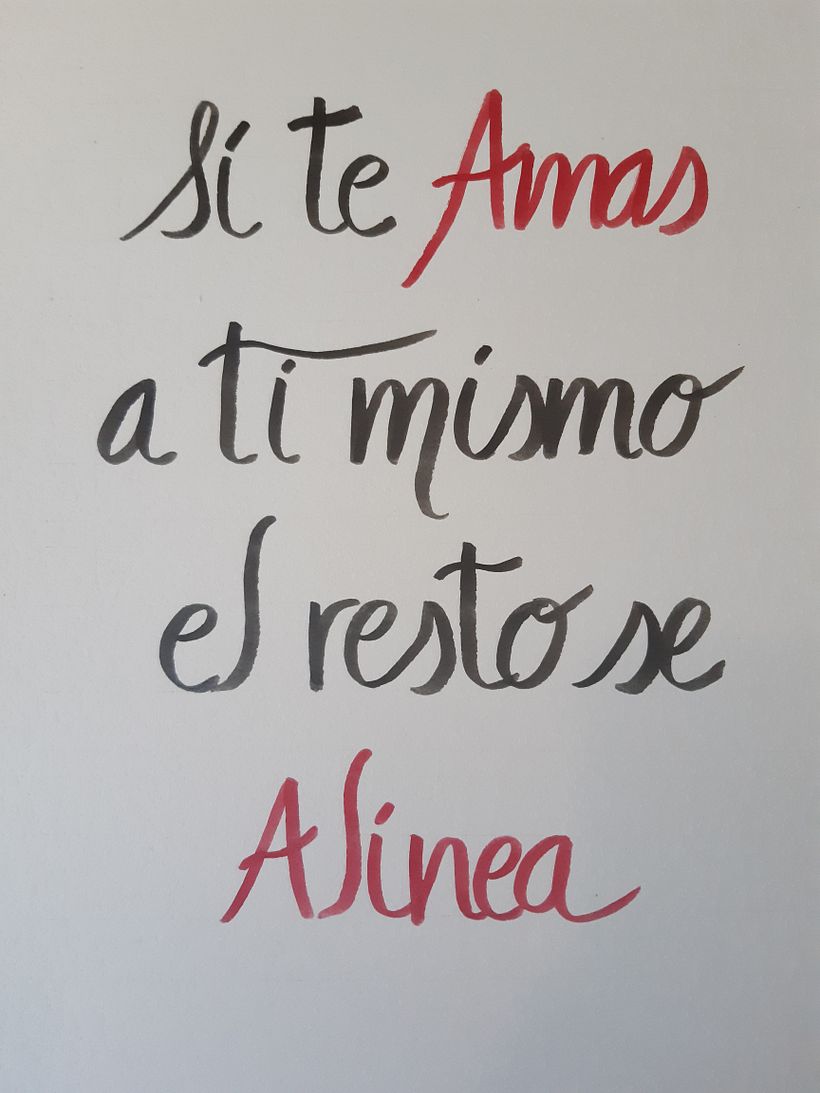 Sí te Amas
a ti mismo
el resto se
Alinea